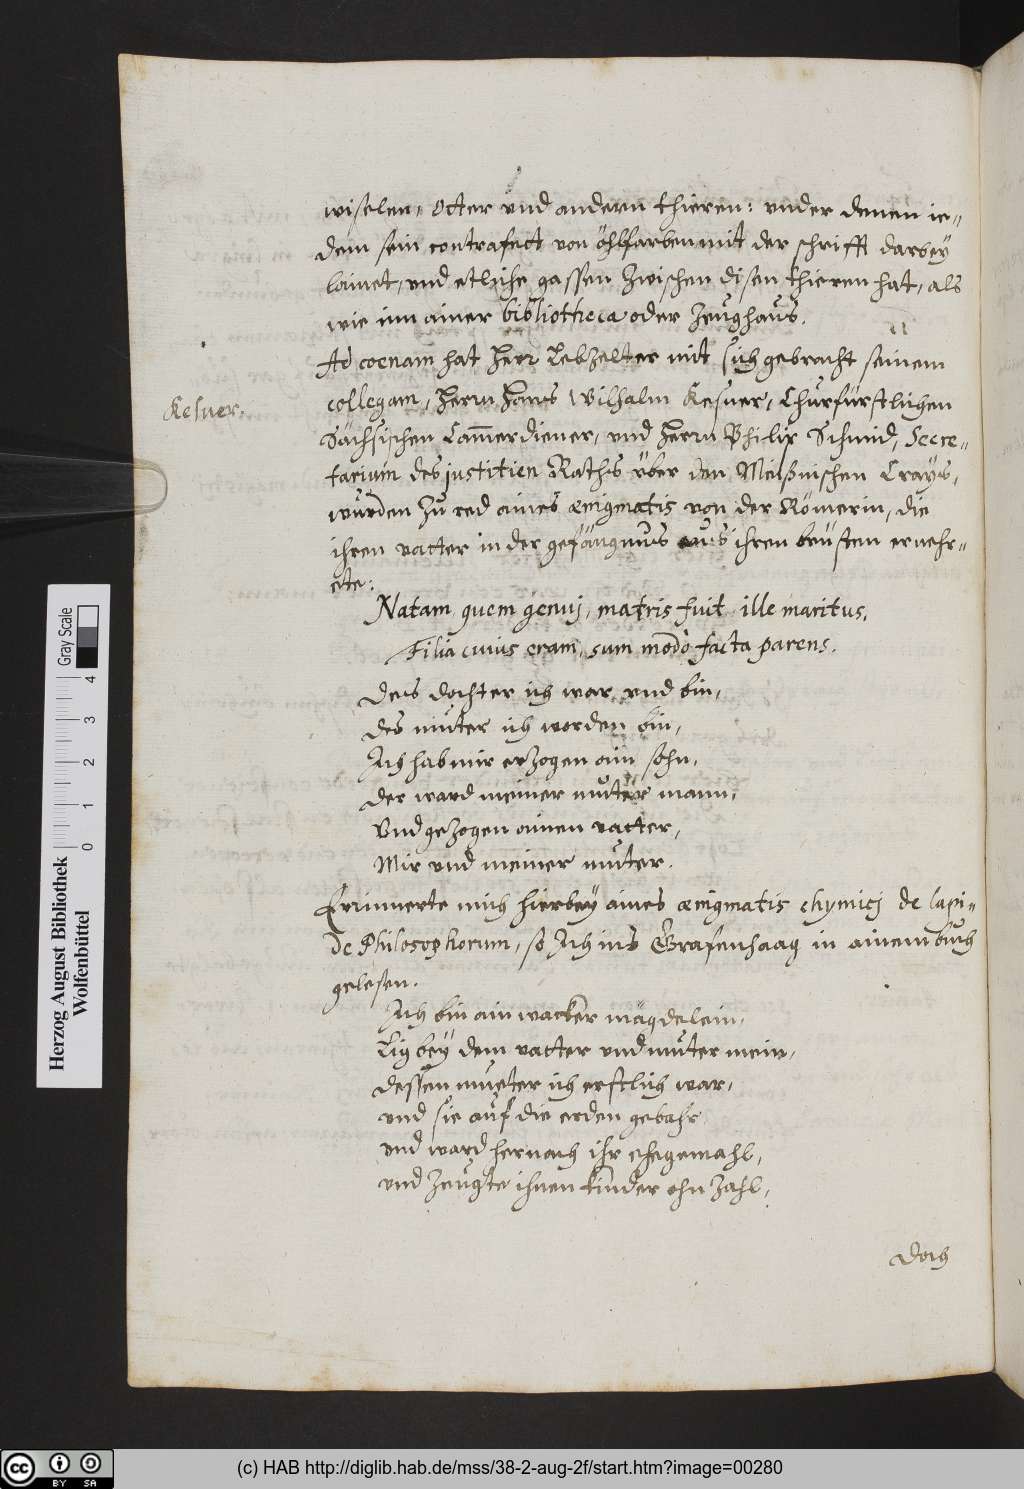 wiselen, Otter und anderen thieren: under denen ie-
dem sein contrafect von öhlfarben mit der schrifft darbey
lainet, und etliche gassen zwischen disen thieren hat, als
wie inn ainer bibliotheca oder Zeughaus.
Ad coenam hat Herr Lebzelter mit sich gebracht seinem
Kesner.
collegam, Herrn Hans Wilhalm Kesner, Churfürstlichen
Sächsischen Cam̄erdiener, und Herrn Philip Schmid, Secre-
tarium des justitien Raths über den Meißnischen Crays,
wurden zu red aines ænigmatis von der Römerin, die
ihren vatter in der gefängnus aus ihren brüsten ernehr-
ete:
Natam quem genuj, matris fuit ille maritus,
Filia cuius eram, sum modò facta parens.
Des dochter ich war und bin,
des muter ich worden bin,
Ich hab mir erzogen ain sohn,
der ward meiner muter mann,
Und gezogen ainen vatter,
Mir und meiner muter.
Erinnerte mich hierbey aines ænigmatis chymicj de lapi-
de Philosophorum, so Ich ins Grafenhaag in ainem buch
gelesen.
Ich bin ain wacker mägdelein,
Lig bey dem vatter und muter mein,
dessen mueter ich erstlich war,
und sie auf die erden gebahr
und ward hernach ihr ehegemahl,
und zeugte ihnen kinder ohn zahl,
Doch
Herzog August Bibliothek
Wolfenbüttel
0 1 2 3 4
Gray Scale
cc BY SA
(c) HAB http://diglib.hab.de/mss/38-2-aug-2f/start.htm?image=00280